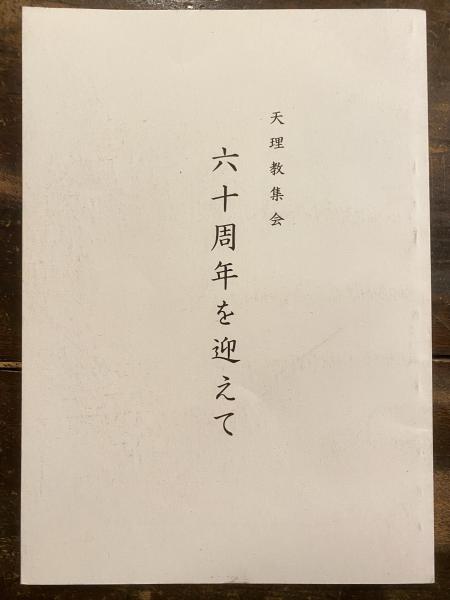 天理教集会
六十周年を迎えて